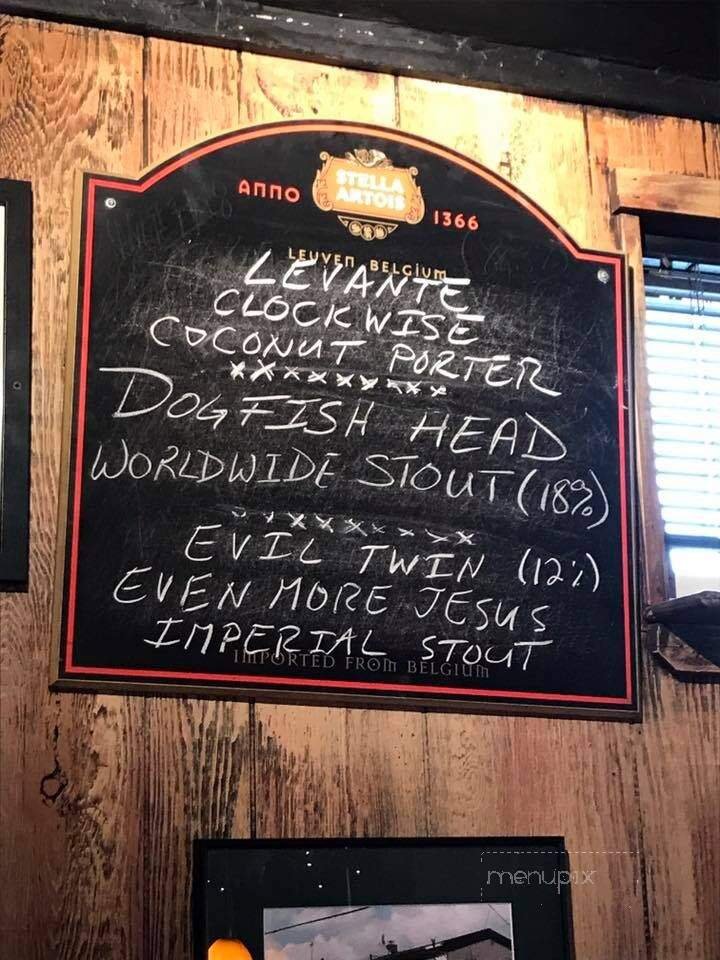 STELLA
ARTOIS
ANNO 1366
LEUVEN BELGIUM
LEVANTE
CLOCKWISE
COCONUT PORTER
xxxxxxxxx
DOGFISH HEAD
WORLDWIDE STOUT (18%)
xxxxxxxxx
EVIL TWIN (12%)
EVEN MORE JESUS
IMPERIAL STOUT
IMPORTED FROM BELGIUM
menupix